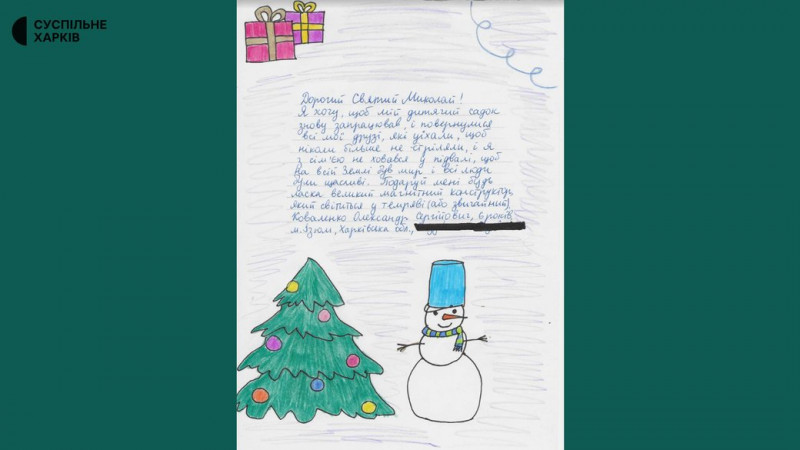 СУСПІЛЬНЕ
ХАРКІВ
Дорогий Святий Миколай!
Я хочу, щоб мій дитячий садок
знову запрацював, і повернулися
всі мої друзі, які уїхали, щоб
ніколи більше не стріляли, і я
з сім'єю не ховався у підвалі, щоб
на всій Землі був мир і всі люди
були щасливі. Подаруй мені будь
ласка великий магнітний конструктор
який світиться у темряві (або звичайний)
Коваленко Олександр Сергійович, 6 років
м. Ізюм, Харківська обл.,